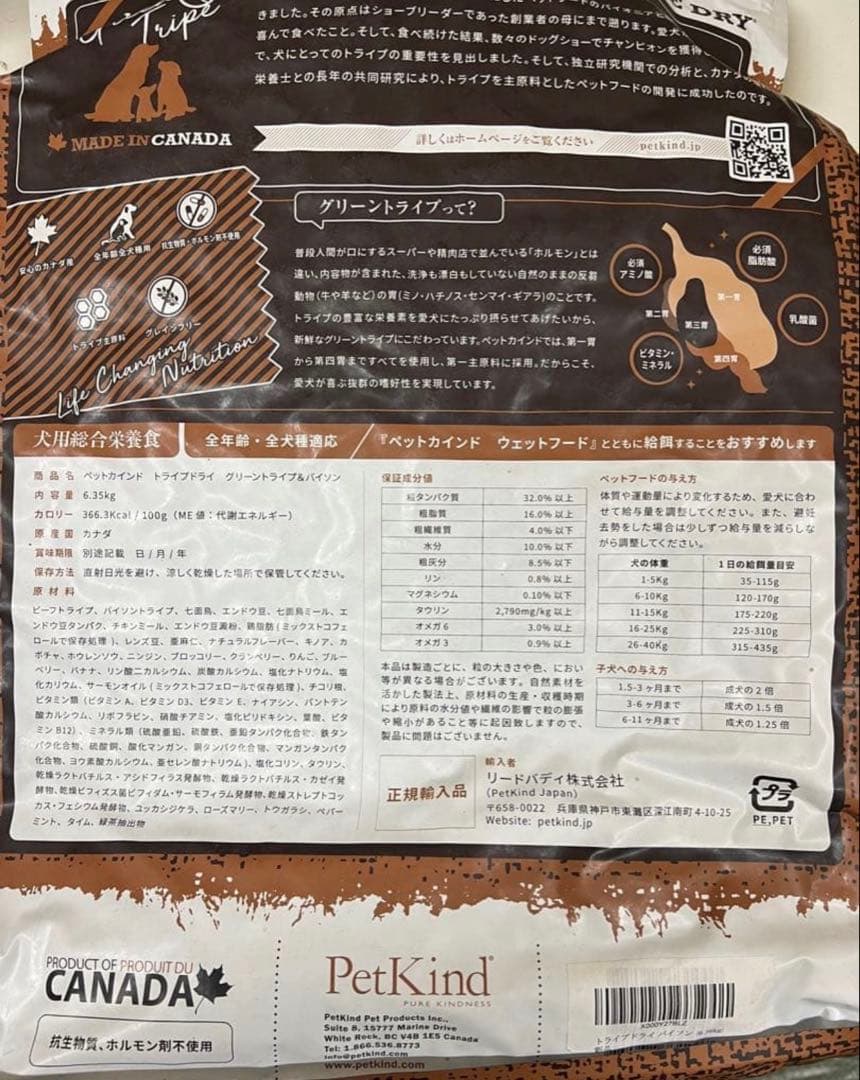 Tripe
DRY
きました。その原点はショーブリーダーであった創業者の母にまで遡ります。愛犬
喜んで食べたこと。そして、食べ続けた結果、数々のドッグショーでチャンピオンを獲得
で、犬にとってのトライプの重要性を見出しました。そして、独立研究機関での分析と、カナダ
栄養士との長年の共同研究により、トライプを主原料としたペットフードの開発に成功したのです。
MADE IN CANADA
詳しくはホームページをご覧ください petkind.jp
グリーントライプって?
安心のカナダ産
全年齢全犬種用
抗生物質・ホルモン剤不使用
トライプ主原料
グレインフリー
Life Changing
Nutrition
普段人間が口にするスーパーや精肉店で並んでいる「ホルモン」とは
違い、内容物が含まれた、洗浄も漂白もしていない自然のままの反芻
動物(牛や羊など)の胃(ミノ・ハチノス・センマイ・ギアラ)のことです。
トライプの豊富な栄養素を愛犬にたっぷり摂らせてあげたいから、
新鮮なグリーントライプにこだわっています。ペットカインドでは、第一胃
から第四胃まですべてを使用し、第一主原料に採用。だからこそ、
愛犬が喜ぶ抜群の嗜好性を実現しています。
必須
アミノ酸
必須
脂肪酸
乳酸菌
ビタミン・
ミネラル
第一胃
第二胃
第三胃
第四胃
犬用総合栄養食
全年齢・全犬種適応
『ペットカインド ウェットフード』とともに給餌することをおすすめします
商品名 ペットカインド トライプドライ グリーントライプ&バイソン
内容量 6.35kg
カロリー 366.3Kcal / 100g (ME値:代謝エネルギー)
原産国 カナダ
賞味期限 別途記載 日/月/年
保存方法 直射日光を避け、涼しく乾燥した場所で保管してください。
原材料
ビーフトライプ、バイソントライプ、七面鳥、エンドウ豆、七面鳥ミール、エ
ンドウ豆タンパク、チキンミール、エンドウ豆澱粉、鶏脂肪(ミックストコフェ
ロールで保存処理)、レンズ豆、亜麻仁、ナチュラルフレーバー、キノア、カ
ボチャ、ホウレンソウ、ニンジン、ブロッコリー、クランベリー、りんご、ブルー
ベリー、バナナ、リン酸二カルシウム、炭酸カルシウム、塩化ナトリウム、塩
化カリウム、サーモンオイル(ミックストコフェロールで保存処理)、チコリ根、
ビタミン類(ビタミンA、ビタミンD3、ビタミンE、ナイアシン、パントテン
酸カルシウム、リボフラビン、硝酸チアミン、塩化ピリドキシン、葉酸、ビタ
ミンB12)、ミネラル類(硫酸亜鉛、硫酸鉄、亜鉛タンパク化合物、鉄タン
パク化合物、硫酸銅、酸化マンガン、銅タンパク化合物、マンガンタンパク
化合物、ヨウ素酸カルシウム、亜セレン酸ナトリウム)、塩化コリン、タウリン、
乾燥ラクトバチルス・アシドフィラス発酵物、乾燥ラクトバチルス・カゼイ発
酵物、乾燥ビフィズス菌ビフィダム・サーモフィラム発酵物、乾燥ストレプトコッ
カス・フェシウム発酵物、ユッカシジゲラ、ローズマリー、トウガラシ、ペパー
ミント、タイム、緑茶抽出物
保証成分値
粗タンパク質 32.0%以上
粗脂質 16.0%以上
粗繊維質 4.0%以下
水分 10.0%以下
粗灰分 8.5%以下
リン 0.8%以上
マグネシウム 0.10%以下
タウリン 2,790mg/kg以上
オメガ6 3.0%以上
オメガ3 0.9%以上
本品は製造ごとに、粒の大きさや色、におい
等が異なる場合がございます。自然素材を
活かした製法上、原材料の生産・収穫時期
により原料の水分値や繊維の影響で粒の膨張
や縮小があること等に起因致しますので、
製品に問題はございません。
ペットフードの与え方
体質や運動量により変化するため、愛犬に合わ
せて給与量を調整してください。また、避妊
去勢をした場合は少しずつ給与量を減らしな
がら調整してください。
犬の体重 1日の給餌量目安
1-5Kg 35-115g
6-10Kg 120-170g
11-15Kg 175-220g
16-25Kg 225-310g
26-40Kg 315-435g
子犬への与え方
1.5-3ヶ月まで 成犬の2倍
3-6ヶ月まで 成犬の1.5倍
6-11ヶ月まで 成犬の1.25倍
正規輸入品
輸入者
リードバディ株式会社
(PetKind Japan)
〒658-0022 兵庫県神戸市東灘区深江南町4-10-25
Website: petkind.jp
プラ
PE,PET
PRODUCT OF PRODUIT DU
CANADA
抗生物質、ホルモン剤不使用
PetKind®
PURE KINDNESS
PetKind Pet Products Inc.,
Suite 8, 15777 Marine Drive
White Rock, BC V4B 1E5 Canada
Tel: 1.866.536.8773
info@petkind.com
www.petkind.com
トライプドライ バイソン